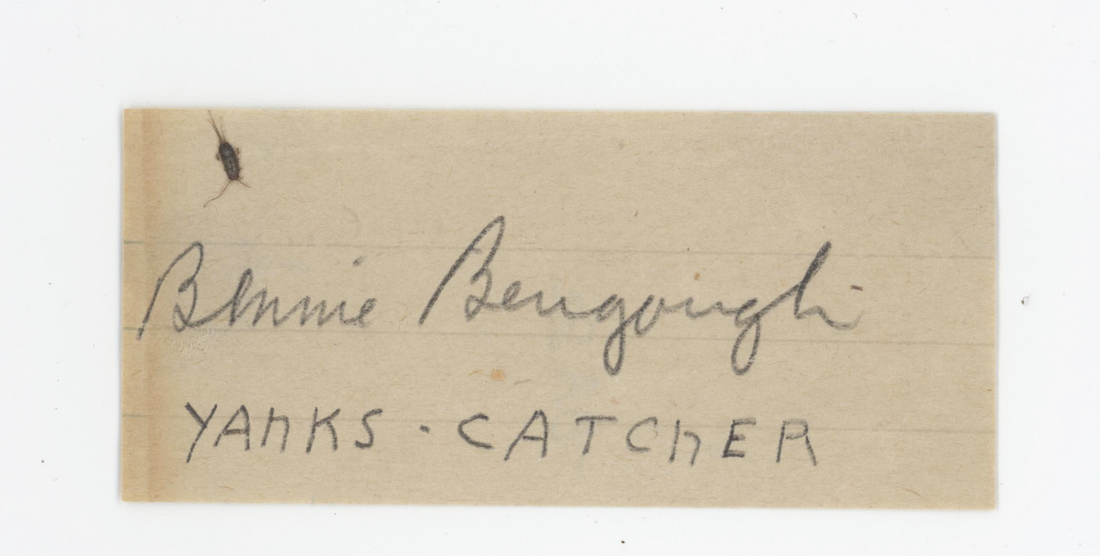 Bennie Bengough
YANKS - CATCHER